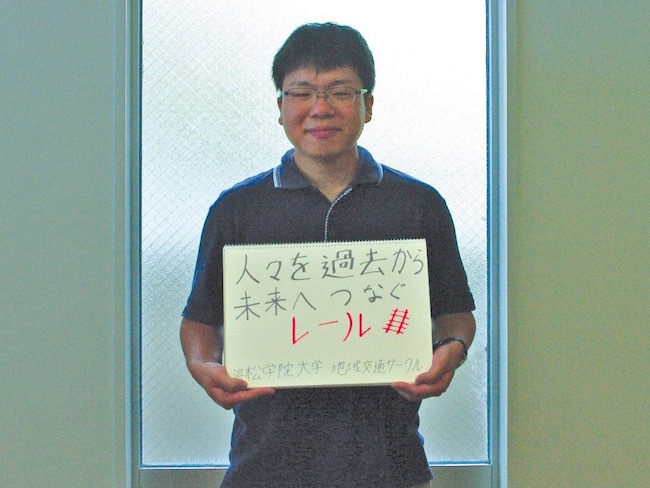 人々を過去から
未来へつなぐ
レール
浜松学院大学 地域交通サークル